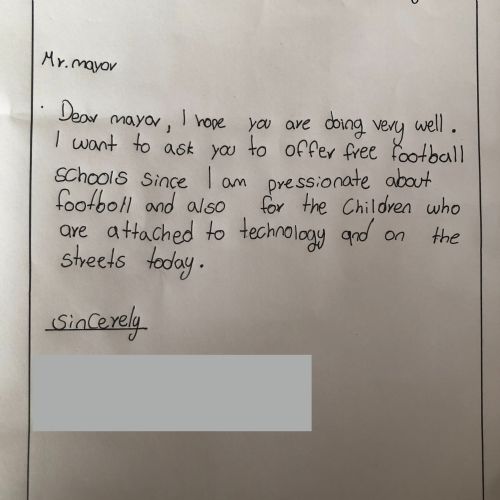 Mr. mayor
Dear mayor, I hope you are doing very well.
I want to ask you to offer free football
schools since I am pressionate about
football and also for the children who
are attached to technology and on the
streets today.
sincerely